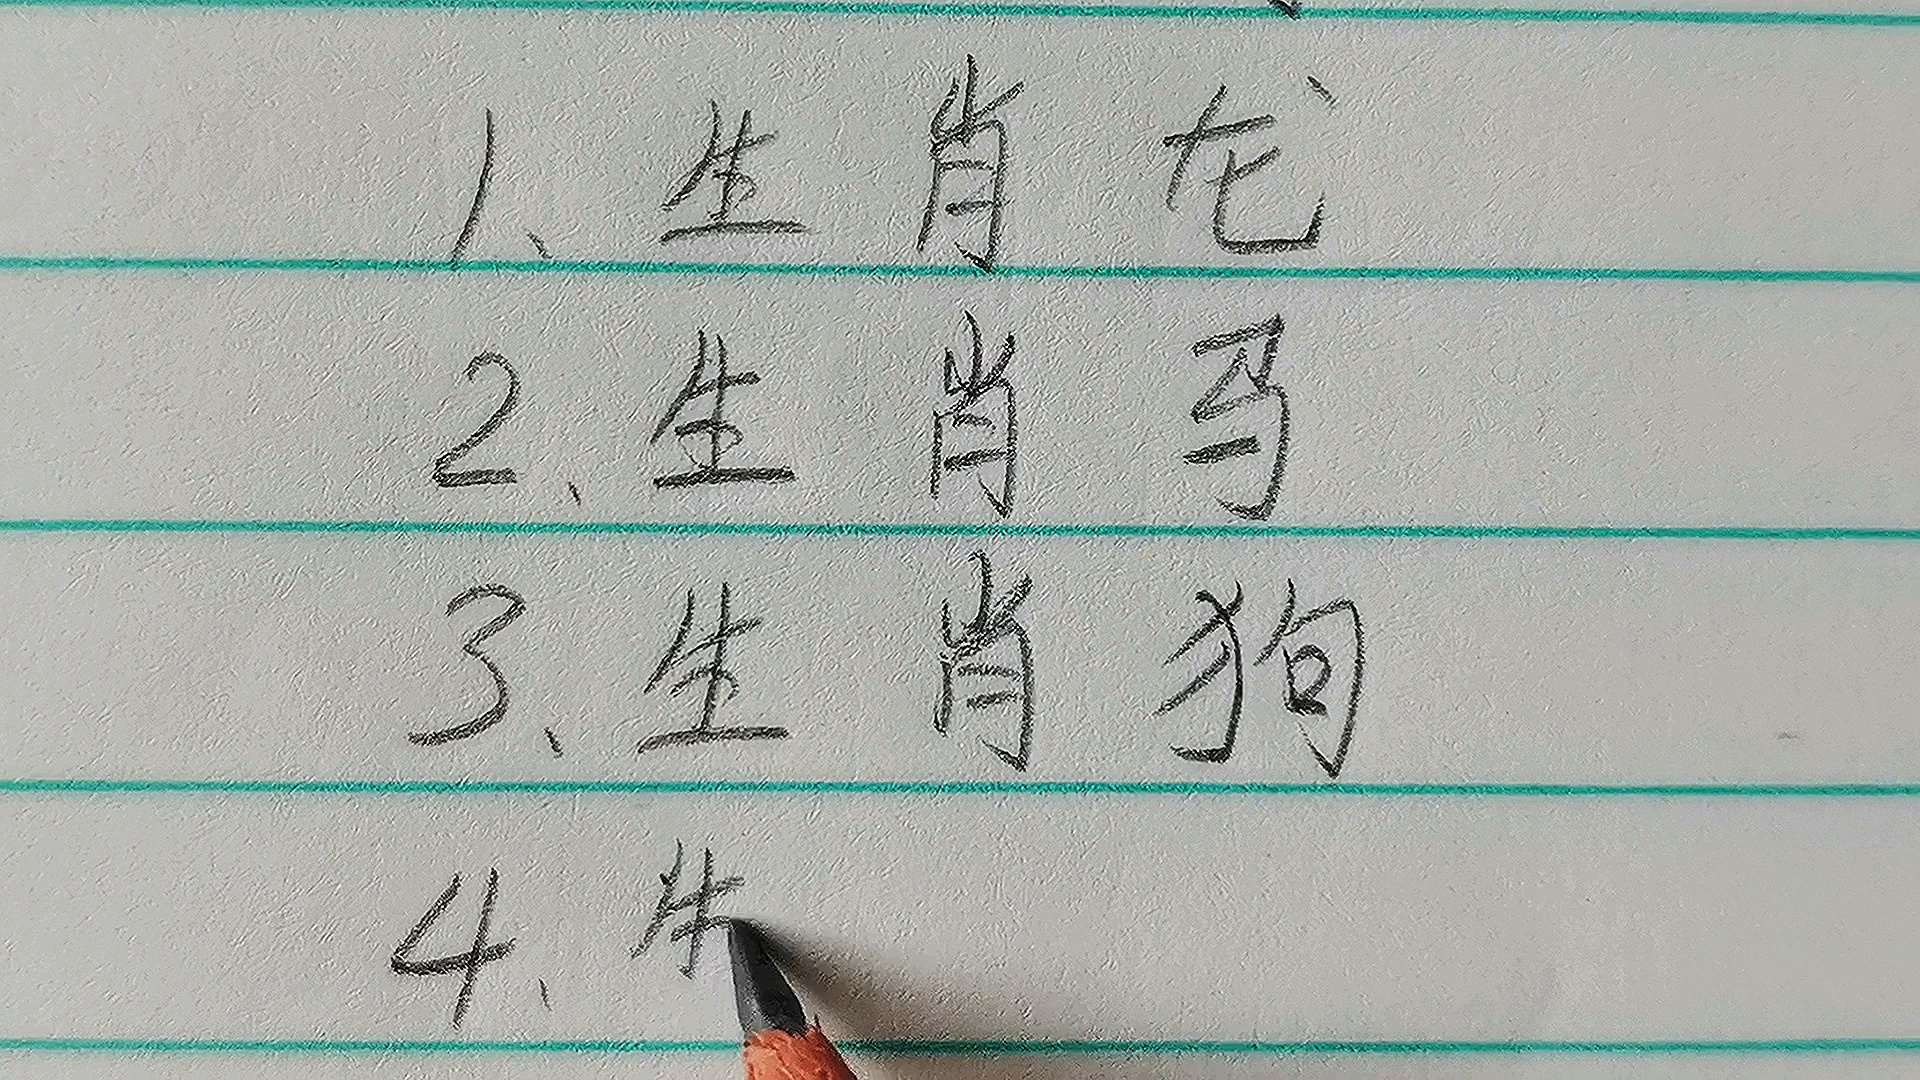 1、生肖龙
2、生肖马
3、生肖狗
4、生